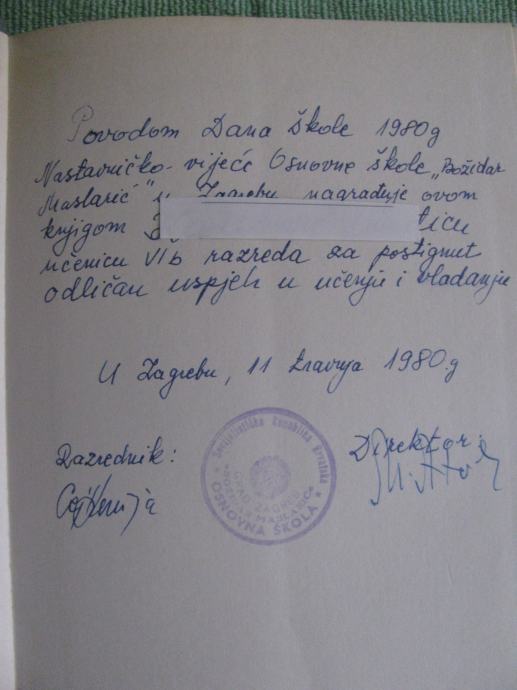 Povodom Dana škole 1980g
Nastavničko-vijeće Osnovne škole „Božidar
Maslarić" u Zagrebu nagrađuje ovom
knjigom
učenicu VI b razreda za postignut
odličan uspjeh u učenju i vladanju
U Zagrebu, 11 travnja 1980.g
Razrednik:
Direktor:
Socijalistička Republika Hrvatska
GRAD ZAGREB
"BOŽIDAR MASLARIĆ"
OSNOVNA ŠKOLA